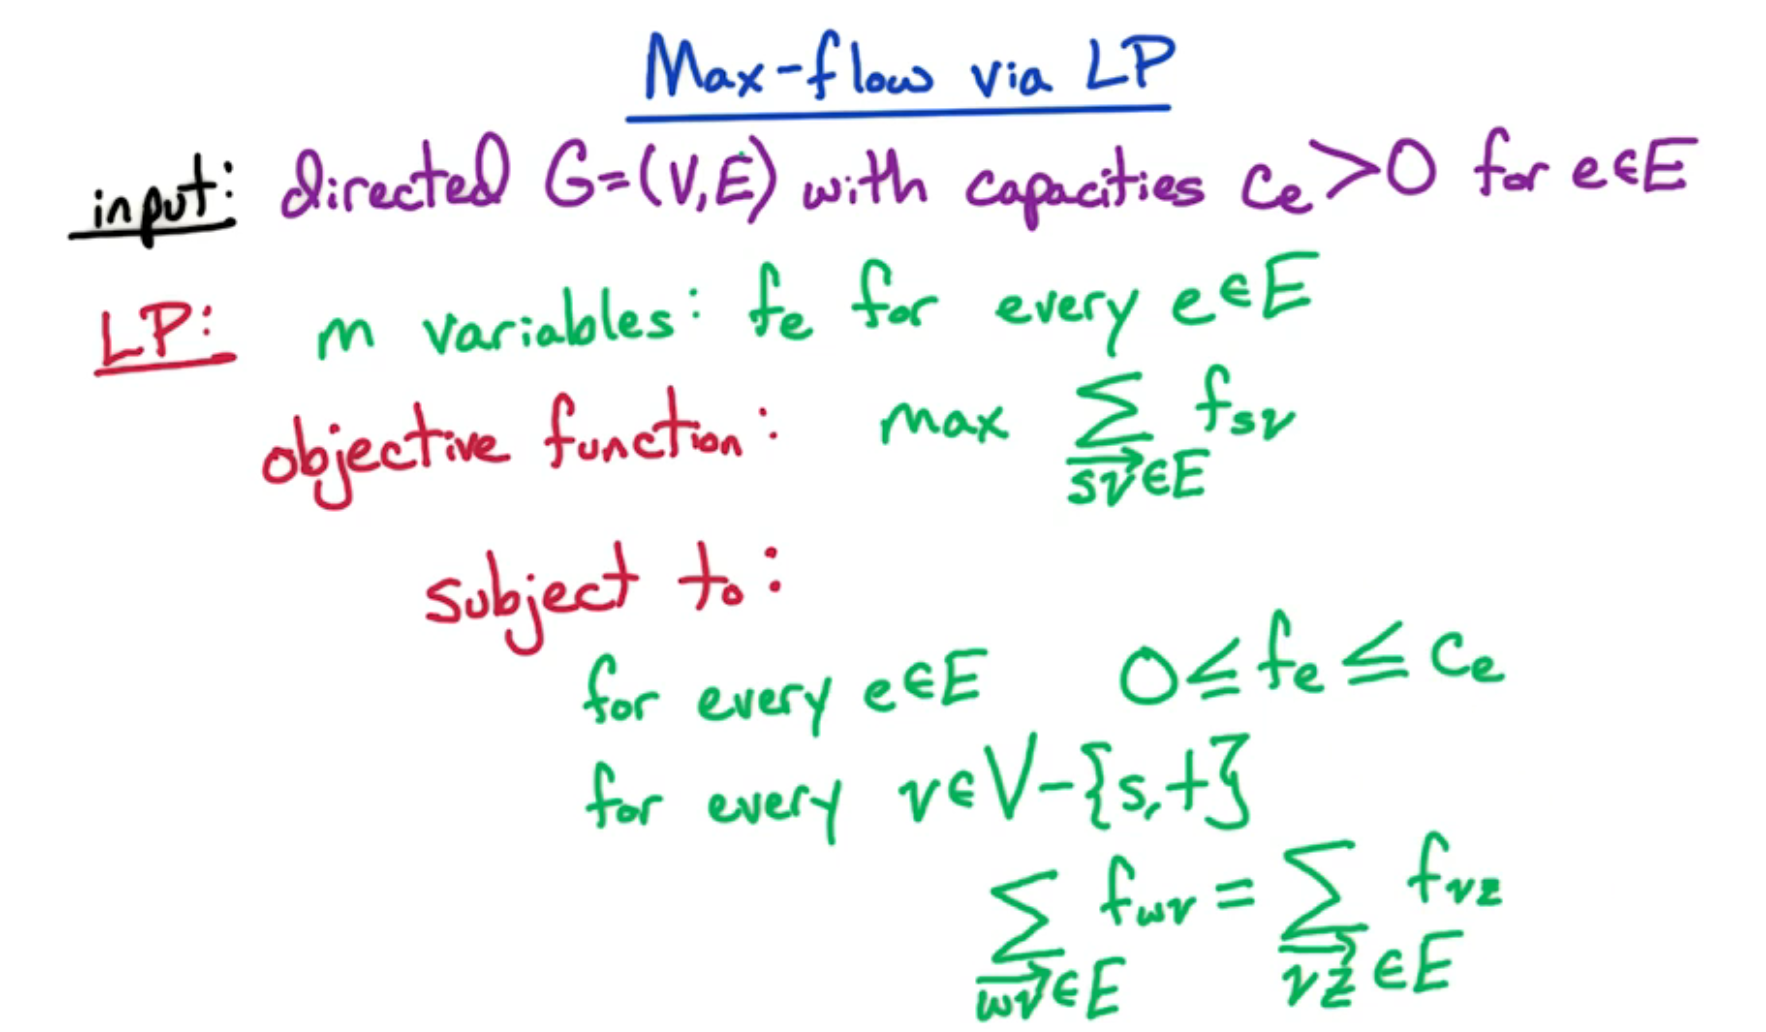 Max-flow via LP
input: directed G=(V,E) with capacities cₑ>0 for e∈E
LP: m variables: fₑ for every e∈E
objective function: max ∑_{\overrightarrow{sv}∈E} f_{sv}
subject to:
for every e∈E 0≤fₑ≤cₑ
for every v∈V-{s,t}
∑_{\overrightarrow{wv}∈E} f_{wv} = ∑_{\overrightarrow{vz}∈E} f_{vz}